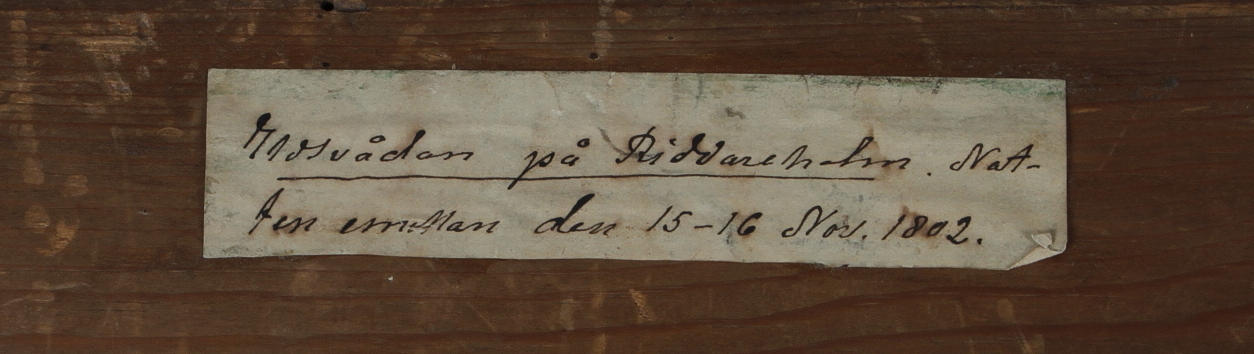 Eldsvådan på Riddareholm. Nat-
ten emellan den 15-16 Nov. 1802.